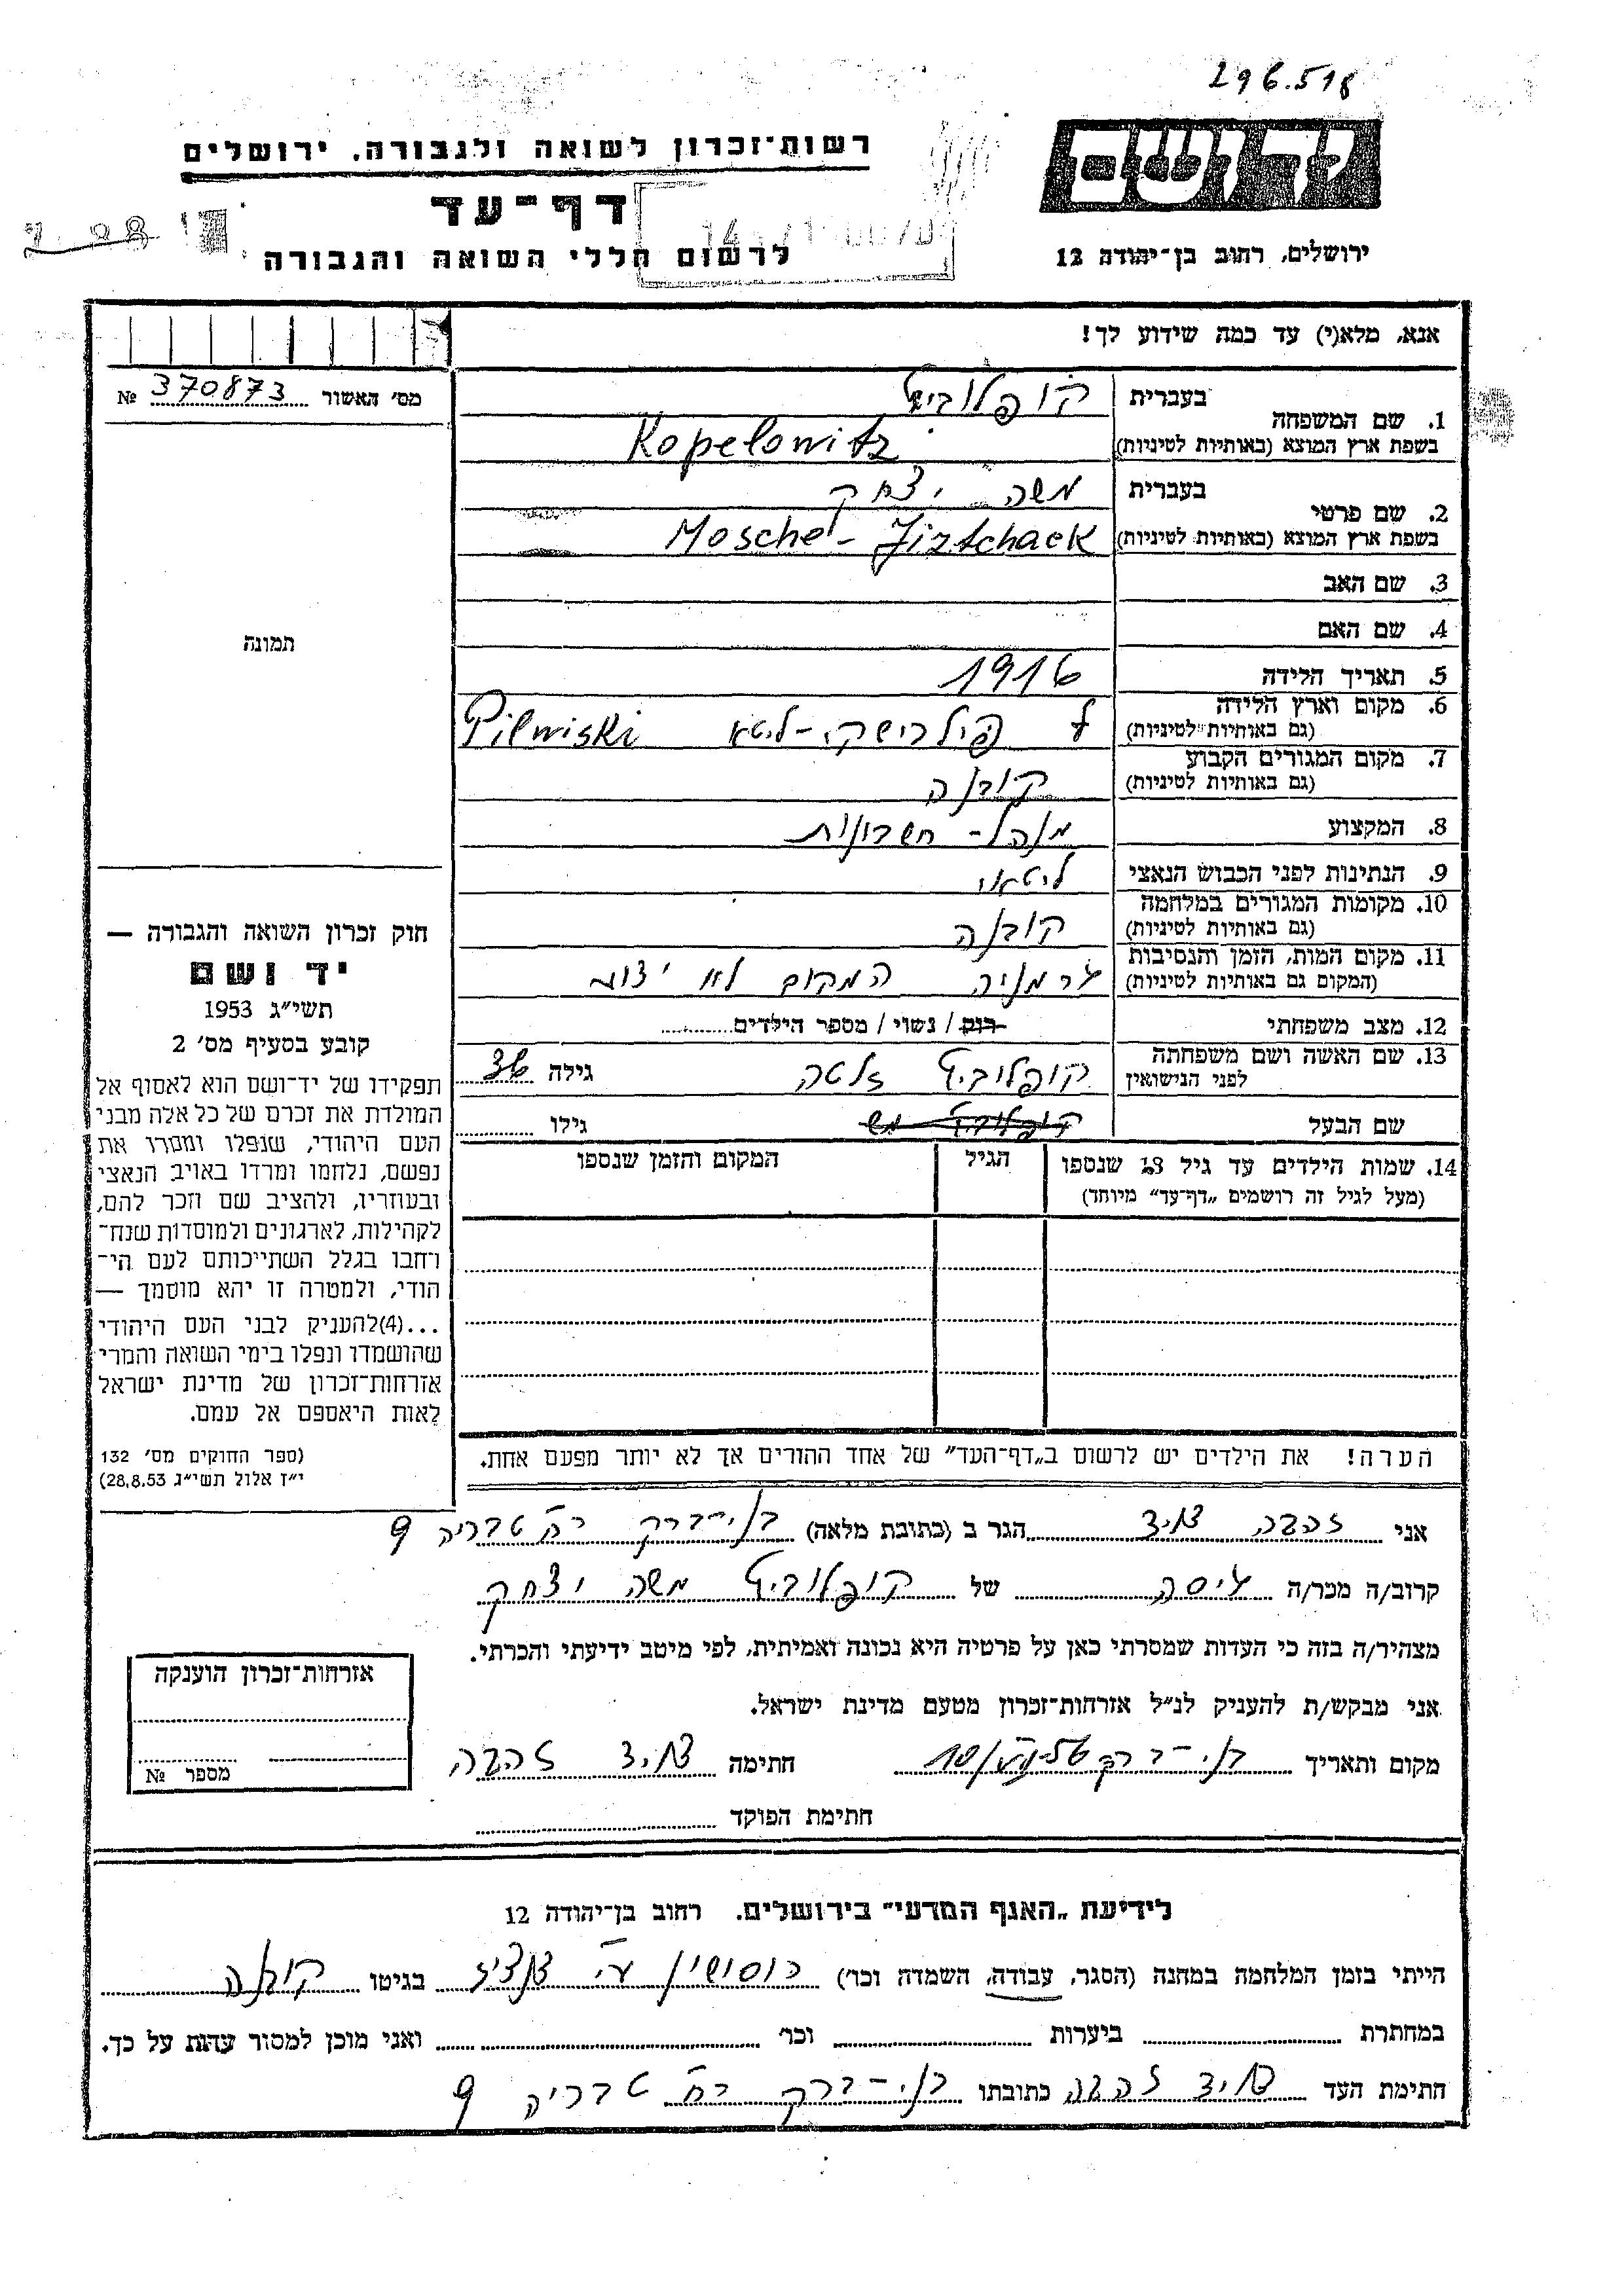 296.518
ידושם
ירושלים, רחוב בן־יהודה 12
רשות־זכרון לשואה ולגבורה, ירושלים
דף־עד
לרשום חללי השואה והגבורה
אנא, מלא(י) עד כמה שידוע לך!
מס׳ האשור № 370873
תמונה
חוק זכרון השואה והגבורה —
יד ושם
תשי״ג 1953
קובע בסעיף מס׳ 2
תפקידו של יד־ושם הוא לאסוף אל
המולדת את זכרם של כל אלה מבני
העם היהודי, שנפלו ומסרו את
נפשם, נלחמו ומרדו באויב הנאצי
ובעוזריו, ולהציב שם וזכר להם,
לקהילות, לארגונים ולמוסדות שנח־
רחבו בגלל השתייכותם לעם הי־
הודי, ולמטרה זו יהא מוסמך —
...(4)להעניק לבני העם היהודי
שהושמדו ונפלו בימי השואה והמרי
אזרחות־זכרון של מדינת ישראל
לאות היאספם אל עמם.
(ספר החוקים מס׳ 132
י״ז אלול תשי״ג 28.8.53)
1. שם המשפחה בעברית קופלוביץ
בשפת ארץ המוצא (באותיות לטיניות) Kopelowitz
2. שם פרטי בעברית משה יצחק
בשפת ארץ המוצא (באותיות לטיניות) Mosche - Jiztchack
3. שם האב
4. שם האם
5. תאריך הלידה 1916
6. מקום וארץ הלידה (גם באותיות לטיניות) פילווישקי - ליטא Pilwiski
7. מקום המגורים הקבוע (גם באותיות לטיניות) קובנה
8. המקצוע מנהל - חשבונות
9. הנתינות לפני הכבוש הנאצי ליטאי
10. מקומות המגורים במלחמה (גם באותיות לטיניות) קובנה
11. מקום המות, הזמן והנסיבות (המקום גם באותיות לטיניות) גרמניה המקום לא ידוע
12. מצב משפחתי רווק / נשוי / מספר הילדים
13. שם האשה ושם משפחתה לפני הנישואין קופלוביץ זלטה גילה 36
שם הבעל גילו
14. שמות הילדים עד גיל 18 שנספו (מעל לגיל זה רושמים „דף־עד״ מיוחד) הגיל המקום והזמן שנספו
הערה! את הילדים יש לרשום ב„דף־העד״ של אחד ההורים אך לא יותר מפעם אחת.
אני זהבה הגר ב (כתובת מלאה) בני-ברק רח׳ טבריה 9
קרוב/ה מכר/ה גיסה של קופלוביץ משה יצחק
מצהיר/ה בזה כי העדות שמסרתי כאן על פרטיה היא נכונה ואמיתית, לפי מיטב ידיעתי והכרתי.
אני מבקש/ת להעניק לנ״ל אזרחות־זכרון מטעם מדינת ישראל.
מקום ותאריך בני-ברק חתימה זהבה
חתימת הפוקד
אזרחות־זכרון הוענקה
מספר №
לידיעת „האגף המדעי״ בירושלים. רחוב בן־יהודה 12
הייתי בזמן המלחמה במחנה (הסגר, עבודה, השמדה וכו׳) בגיטו קובנה
במחתרת ביערות וכו׳ ואני מוכן למסור עדות על כך.
חתימת העד זהבה כתובתו בני-ברק רח׳ טבריה 9